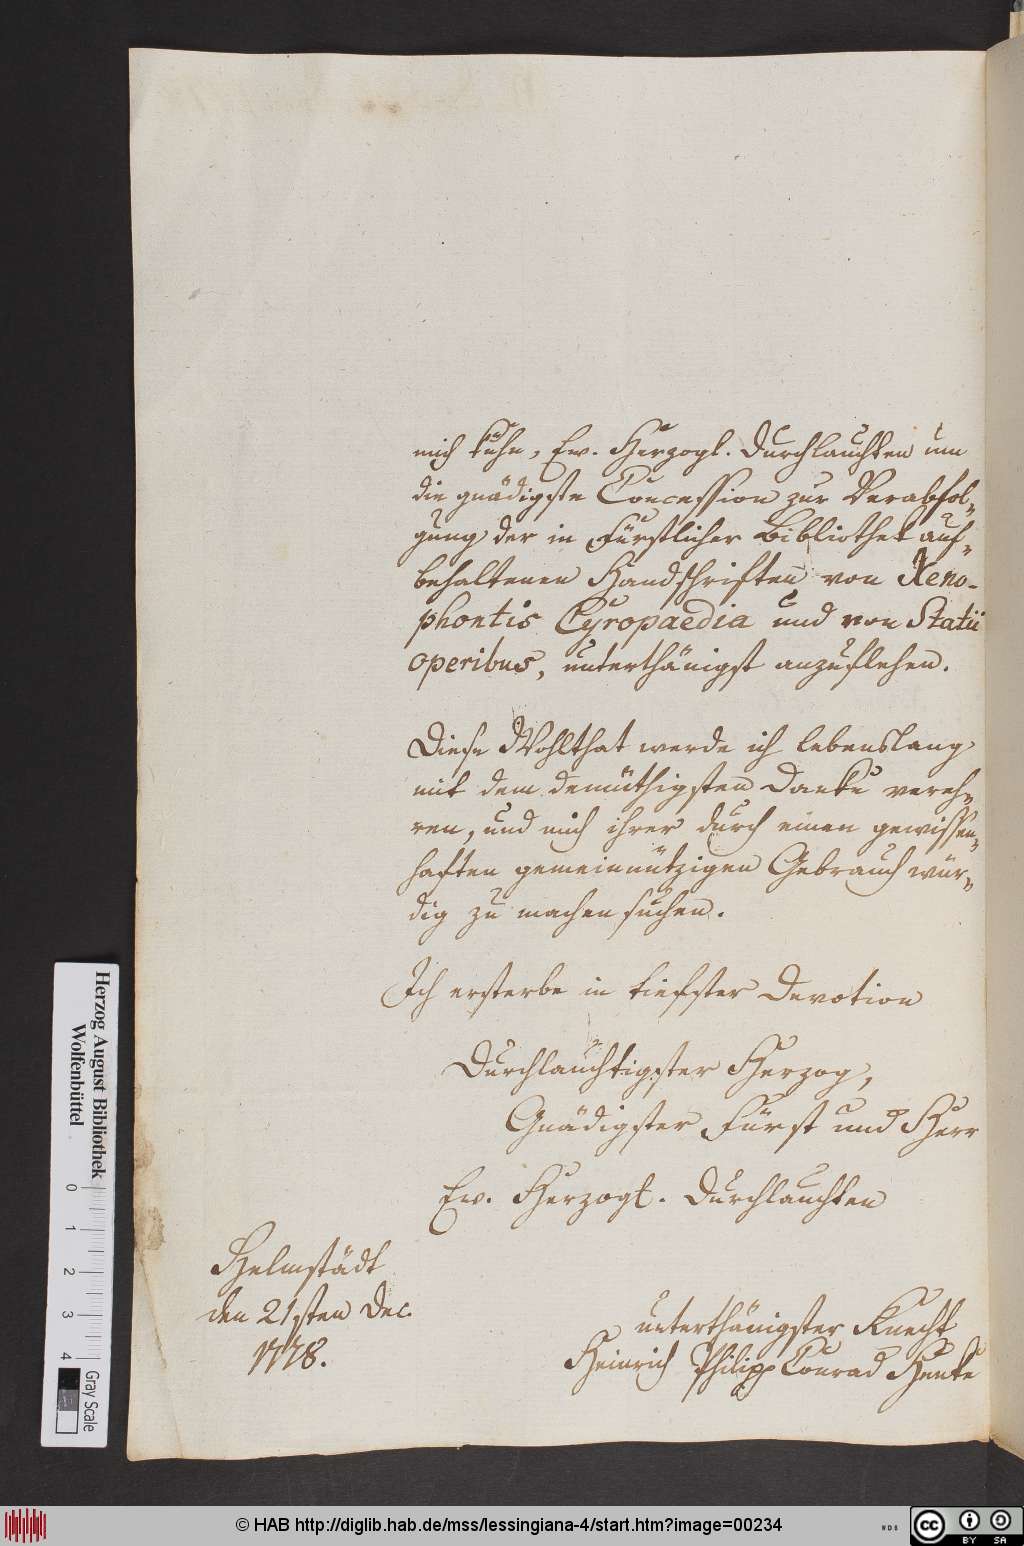 mich kühn, Ew. Herzogl. Durchlauchten um
die gnädigste Concession zur Verabfol-
gung der in Fürstlicher Bibliothek auf-
behaltenen Handschriften von Xeno-
phontis Cyropaedia und von Statii
operibus, unterthänigst anzuflehen.
Diese Wohlthat werde ich lebenslang
mit dem demüthigsten Danke vereh-
ren, und mich ihrer durch einen gewissen-
haften gemeinnützigen Gebrauch wür-
dig zu machen suchen.
Ich ersterbe in tiefster Devotion
Durchlauchtigster Herzog,
Gnädigster Fürst und Herr
Ew. Herzogl. Durchlauchten
Helmstädt
den 21sten Dec.
1778.
unterthänigster Knecht
Heinrich Philipp Conrad Henke
Herzog August Bibliothek
Wolfenbüttel
0 1 2 3 4
Gray Scale
© HAB http://diglib.hab.de/mss/lessingiana-4/start.htm?image=00234
WDB
cc
BY SA